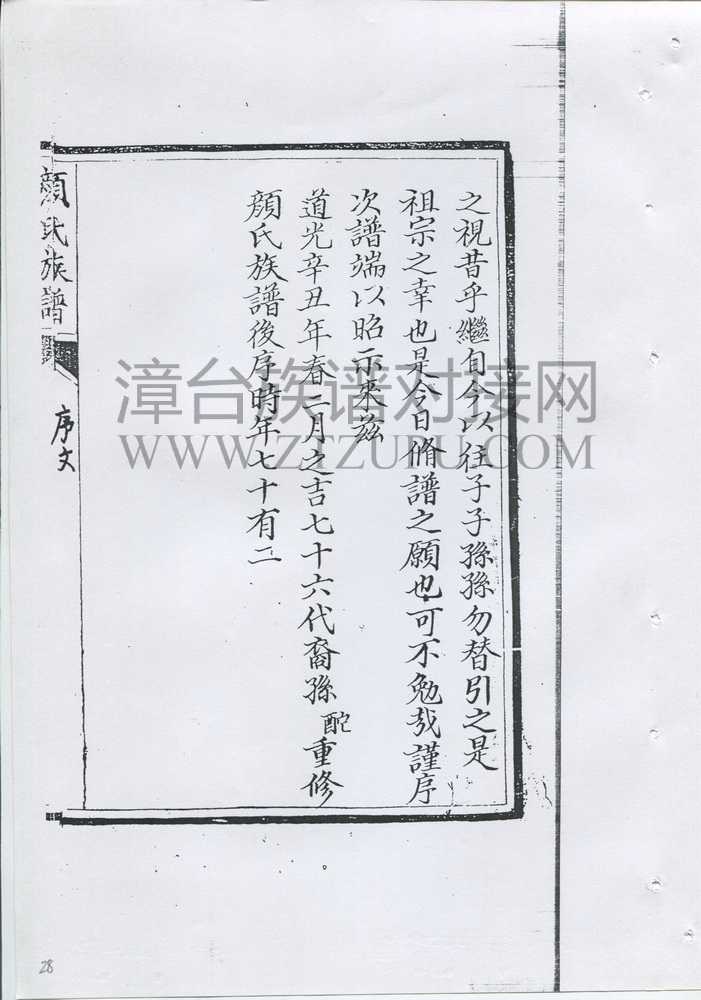 之視昔乎繼自今以往子子孫孫勿替引之是
祖宗之幸也是今日脩譜之願也可不勉哉謹序
次譜端以昭示來茲
道光辛丑年春二月之吉七十六代裔孫酡重修
顏氏族譜後序時年七十有二
顏氏族譜
序文
漳台族谱对接网
WWW.ZTZUPU.COM
28